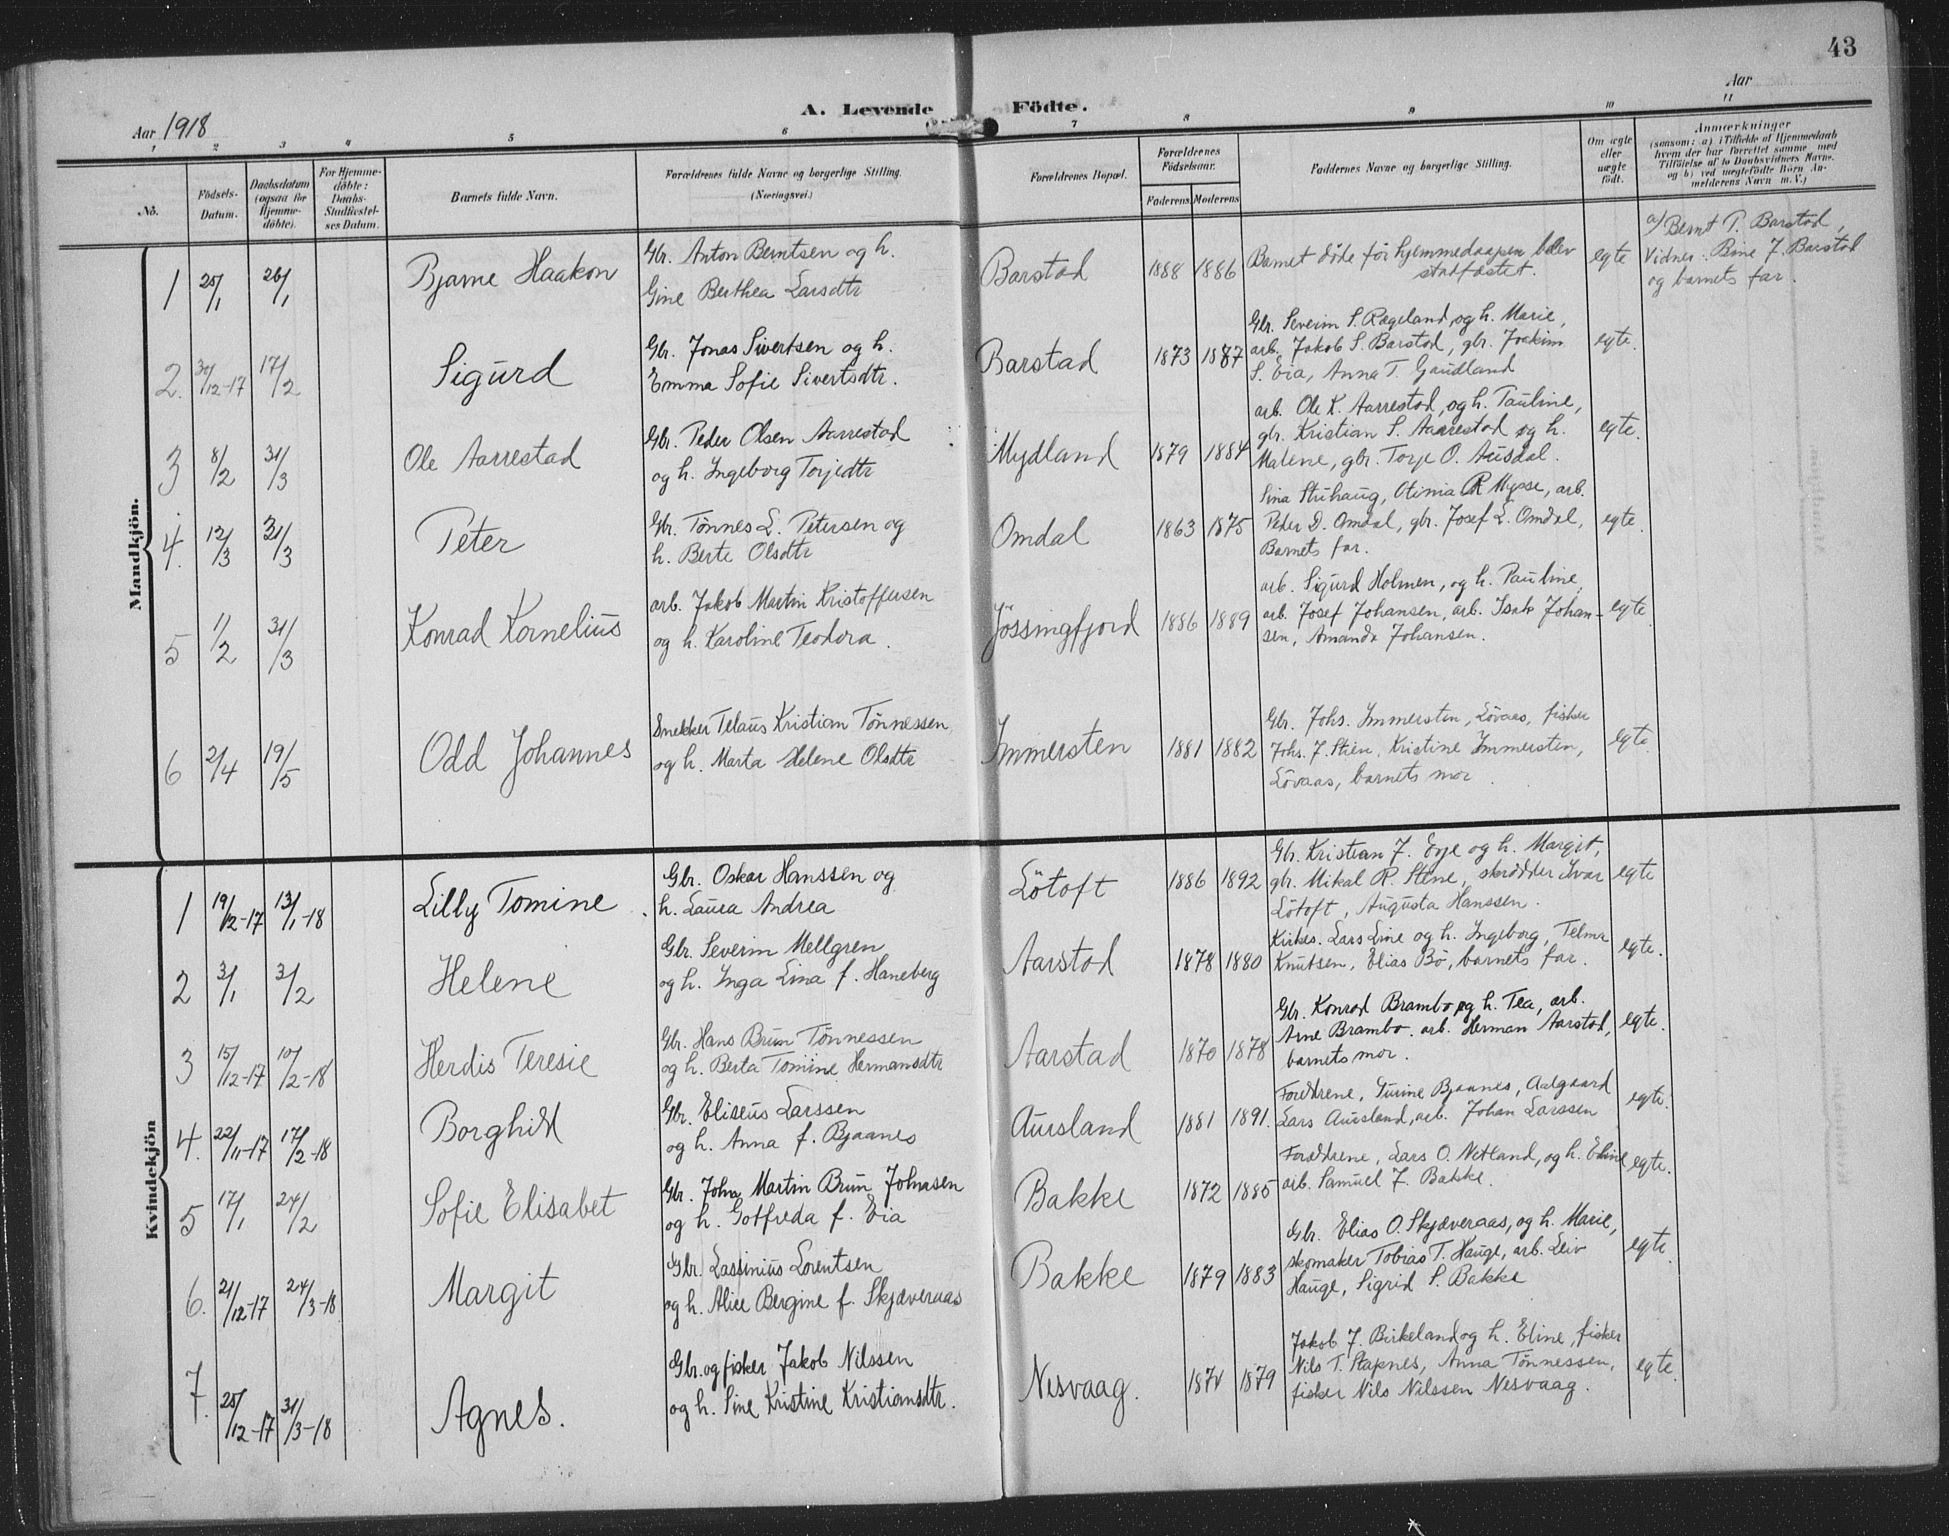 43
A. Levende Födte.
Aar 1918
Aar
1 2 3 4 5 6 7 8 9 10 11
No.
Födsels-Datum.
Daabsdatum (ogsaa for Hjemme-döbte).
For Hjemme-döbte: Daabs-Stadfæstel-ses Datum.
Barnets fulde Navn.
Forældrenes fulde Navne og borgerlige Stilling. (Næringsvei.)
Forældrenes Bopæl.
Forældrenes Födselsaar.
Faderens Moderens
Faddernes Navne og borgerlige Stilling.
Om ægte eller uægte födt.
Anmærkninger
(saasom: a) i Tilfælde af Hjemmedaab
hvem der har forrettet samme med
Tilföielse af to Daabsvidners Navne.
og b) ved uægtefödte Börn An-
melderens Navn m. V.)
Mandkjön.
1 25/1 26/1 Bjarne Haakon
Gbr. Anton Berntsen og h.
Gine Berthea Larsdtr
Barstad 1888 1886
Barnet döde för hjemmedaapen blev
stadfæstet.
egte
a/ Bernt T. Barstad,
Vidner: Bine J. Barstad
og barnets far.
2. 30/12-17 17/2 Sigurd
Gbr. Jonas Sivertsen og h.
Emma Sofie Sivertsdtr.
Barstad 1873 1887
Gbr. Severin S. Rægeland, og h. Marie,
arb. Jakob S. Barstad, gbr. Joakim
S. Eia, Anna T. Gaudland
egte.
3 8/2 31/3 Ole Aarrestad
Gbr. Peder Olsen Aarrestad
og h. Ingeborg Torjedtr
Mydland 1879 1884
arb. Ole K. Aarrestad, og h. Pauline,
gbr. Kristian S. Aarrestad og h.
Malene, gbr. Torje O. Ausdal.
egte.
4. 12/3 31/3 Peter
Gbr. Tönnes L. Petersen og
h. Berte Olsdtr
Omdal 1863 1875
Sina Struhaug, Otinia R Mysse, arb.
Peder D. Omdal, gbr. Josef L. Omdal,
Barnets far.
egte.
5 1/2 31/3 Konrad Kornelius
arb. Jakob Martin Kristoffersen
og h. Karoline Teodora.
Jössingfjord 1886 1889
arb. Sigurd Holmen, og h. Pauline,
arb. Josef Johansen, arb. Isak Johan-
sen, Amanda Johansen.
egte.
6 2/4 19/5 Odd Johannes
Snekker Telaus Kristian Tönnessen
og h. Marta Helene Olsdtr
Immersten 1881 1882
Gbr. Johs. Immersten, Lövaas, fisker
Johs. J. Stien, Kristine Immersten,
Lövaas, barnets mor.
egte.
Kvindekjön
1 19/12-17 13/1-18 Lilly Tomine.
Gbr. Oskar Hanssen og
h. Laura Andrea
Lötoft 1886 1892
Gbr. Kristian J. Evje og h. Margit,
gbr. Mikal R. Stene, skrædder Ivar
Lötoft, Augusta Hanssen.
egte
2 3/1 3/2 Helene
Gbr. Severin Mellgren
og h. Inga Lina f. Haneberg
Aarstad 1878 1880
Kirkes. Lars Line og h. Ingeborg, Telma
Knutsen, Elias Bö, barnets far.
egte.
3 15/12-17 10/2-18 Herdis Teresie
Gbr. Hans Brun Tönnessen
og h. Berta Tomine Hermansdtr
Aarstad 1870 1878
Gbr. Konrad Brambo og h. Tea, arb.
Arne Brambo. arb. Herman Aarstad,
barnets mor.
egte.
4. 22/11-17 17/2-18 Borghild
Gbr. Eliseus Larssen
og h. Anna f. Bjaanes
Aursland 1881 1891.
Forældrene, Turine Bjaanes, Aalgaard
Lars Aursland, arb. Johan Larssen
egte.
5 17/1 24/2 Sofie Elisabet
Gbr. John Martin Brun Johnsen
og h. Gotfreda f. Eia
Bakke 1872 1885
Forældrene, Lars O. Netland, og h. Eline
arb. Samuel J. Bakke.
egte.
6. 21/12-17 24/3-18 Margit
Gbr. Lassinius Lorentsen
og h. Alice Bergine f. Skjæveraas
Bakke 1879 1883
Gbr. Elias O. Skjæveraas, og h. Marie,
skomaker Tobias T. Hauge, arb. Leiv
Hauge, Sigrid S. Bakke
egte.
7. 25/12-17 31/3-18 Agnes.
Gbr. og fisker Jakob Nilssen
og h. Sine Kristine Kristiansdtr.
Nesvaag. 1874 1879
Jakob J. Birkeland og h. Eline, fisker
Nils T. Stapnes, Anna Tönnessen,
fisker Nils Nilssen Nesvaag.
egte.